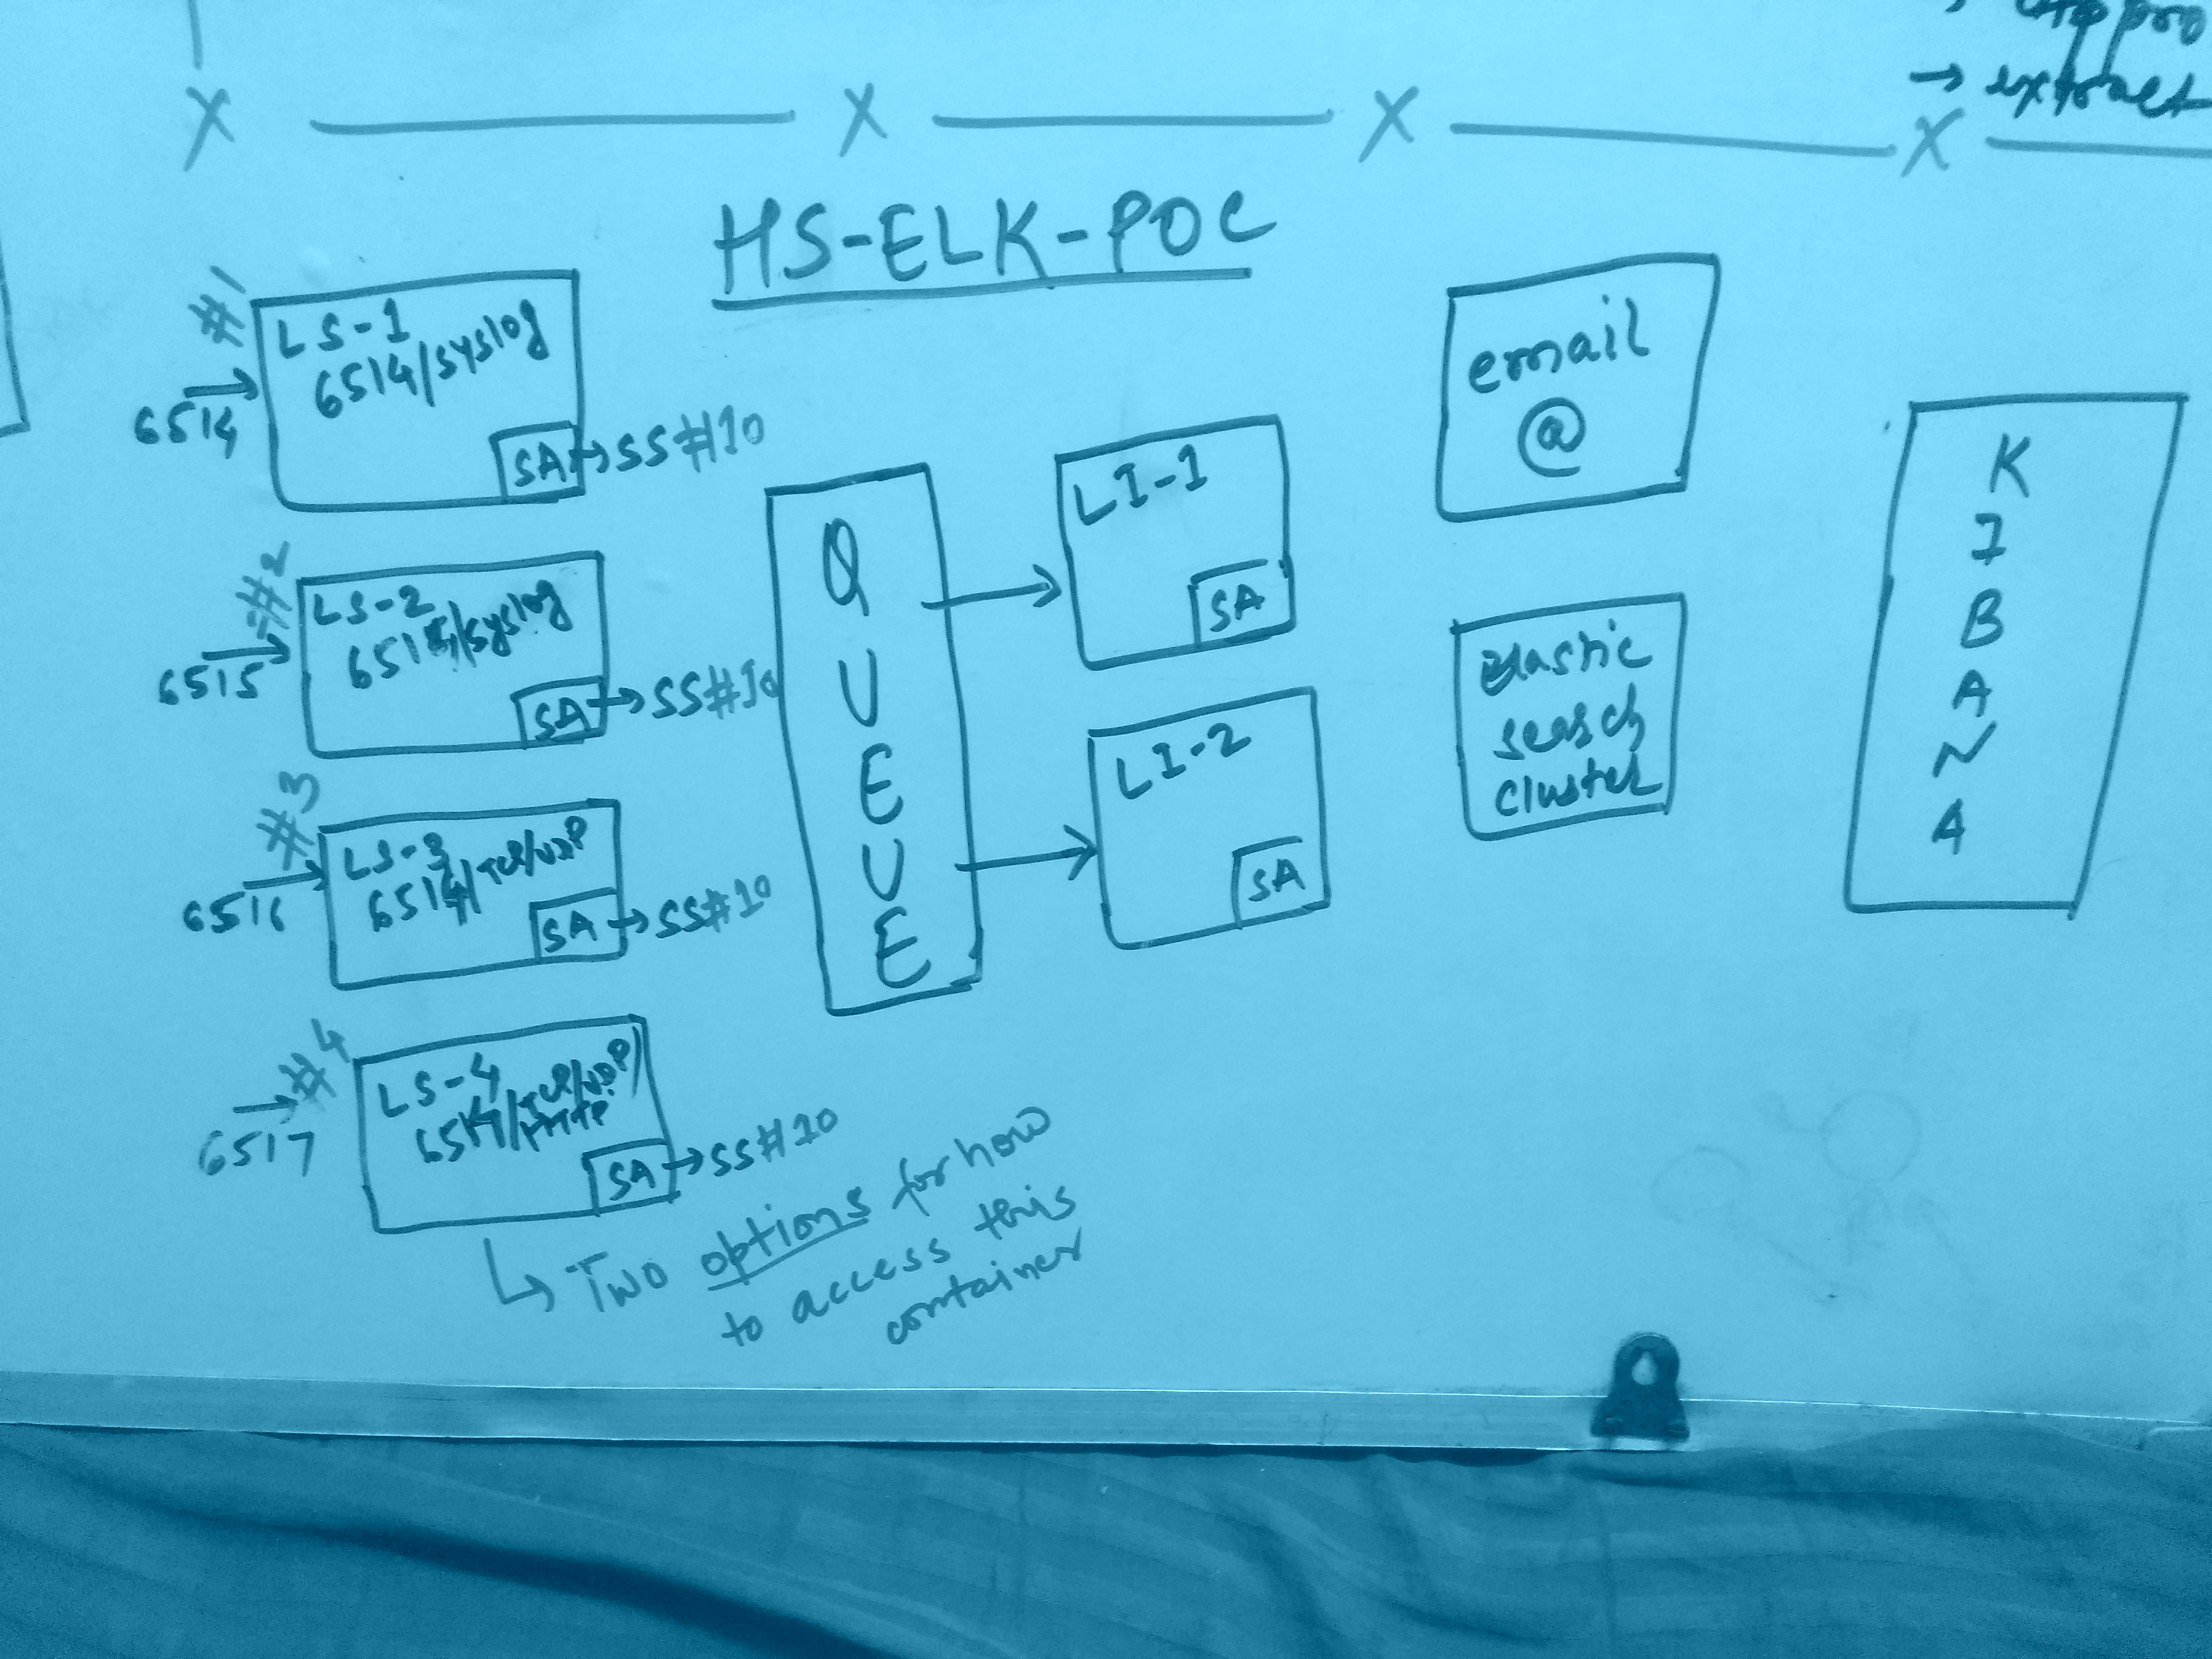 → extract
X X X X
HS-ELK-POC
#1
LS-1
6514/syslog
6514
SA
SS#10
#2
LS-2
/syslog
6515
SA
SS#10
#3
LS-3
6514/TCP/UDP
6516
SA
SS#10
#4
LS-4
/TCP/UDP/
HTTP
6517
SA
SS#10
Two options for how
to access this
container
QUEUE
LI-1
SA
LI-2
SA
email
@
elastic
search
cluster
KIBANA